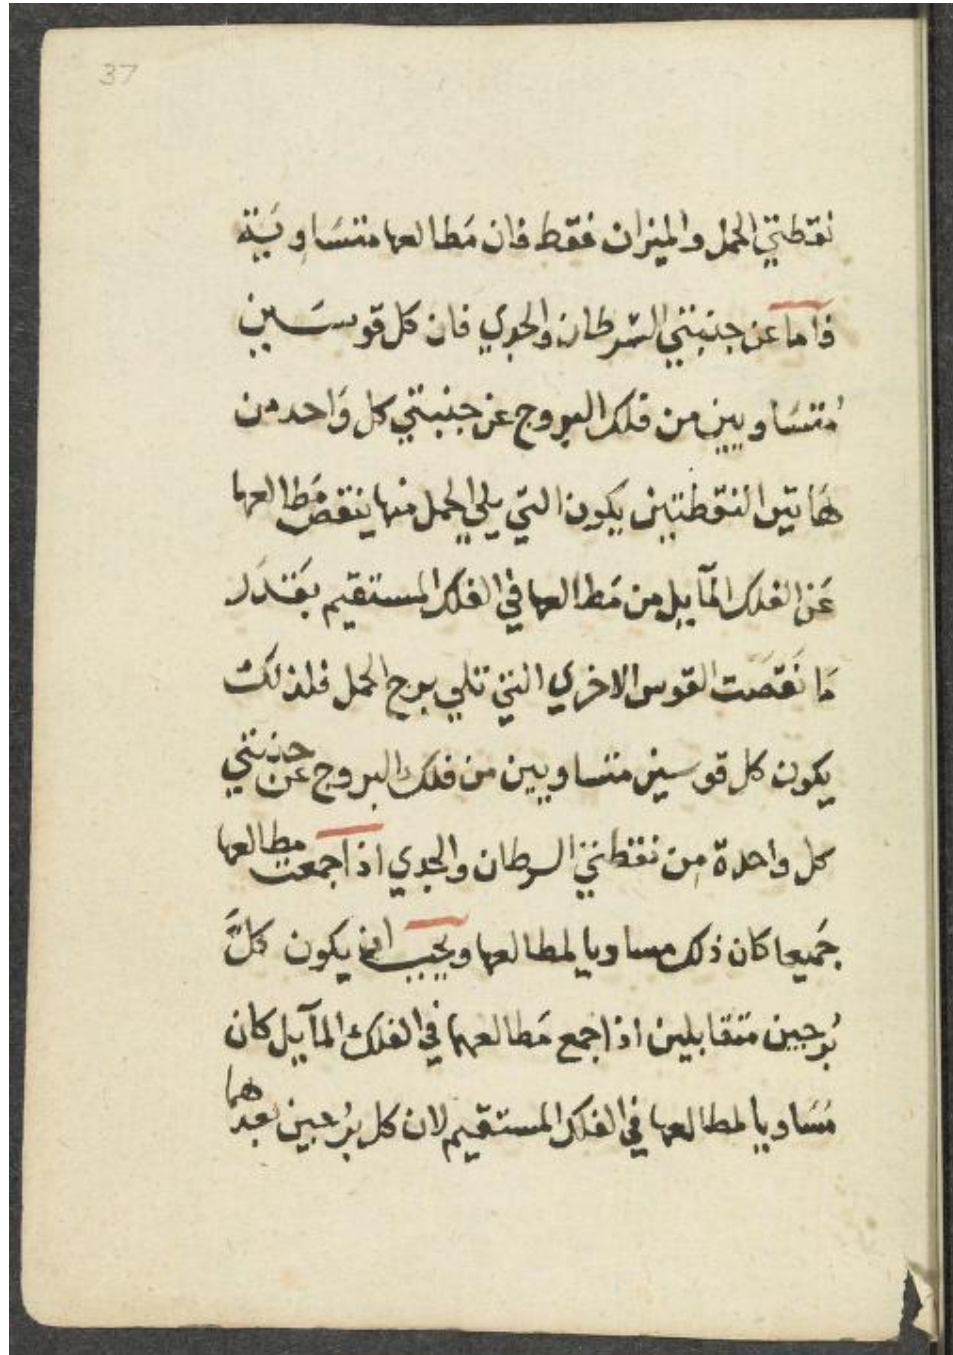 37
نقطتي الحمل والميزان فقط فان مَطالعها متسَاوِيَة
فَاَما عن جنبتي السرطان والجدي فان كل قوسَين
مُتسَاويين من فلك البروج عن جنبتي كل وَاحد من
هَاتين النقطتين يكون التي يلي الحمل منها ينقص مَطالعها
عَن الفلك المآيل من مَطالعها في الفلك المستقيم بقَدَر
مَا نقصَت القوس الاخري التي تلي برج الحمل فلذلك
يكون كل قوسين متساويين من فلك البروج عن جنبتي
كل واحدة من نقطتي السرطان والجدي اذا جمعت مطالعها
جَميعا كان ذلك مساويا لمطالعها ويجب ان يكون كلَّ
بُرجين متقابلين اذا جمع مَطالعهما في الفلك المآيل كان
مُسَاويا لمطالعها في الفلك المستقيم لان كل بُرجين بعدهما